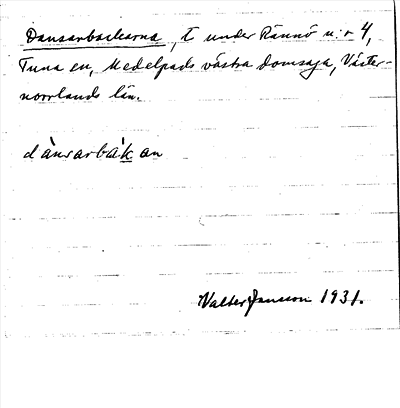 Dansarbackarna, t under Rännö n:r 4,
Tuna sn, Medelpads västra domsaga, Väster-
norrlands län.
dànsarbàkan
Valter Jansson 1931.